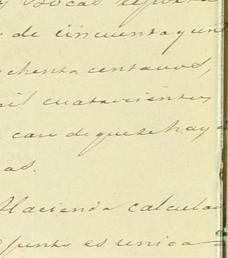 y Bocas
de cincuenta y un
ochenta centavos,
mil cuatrocientos
caso de que se haya
as.
Hacienda calcula
Junta es unica=